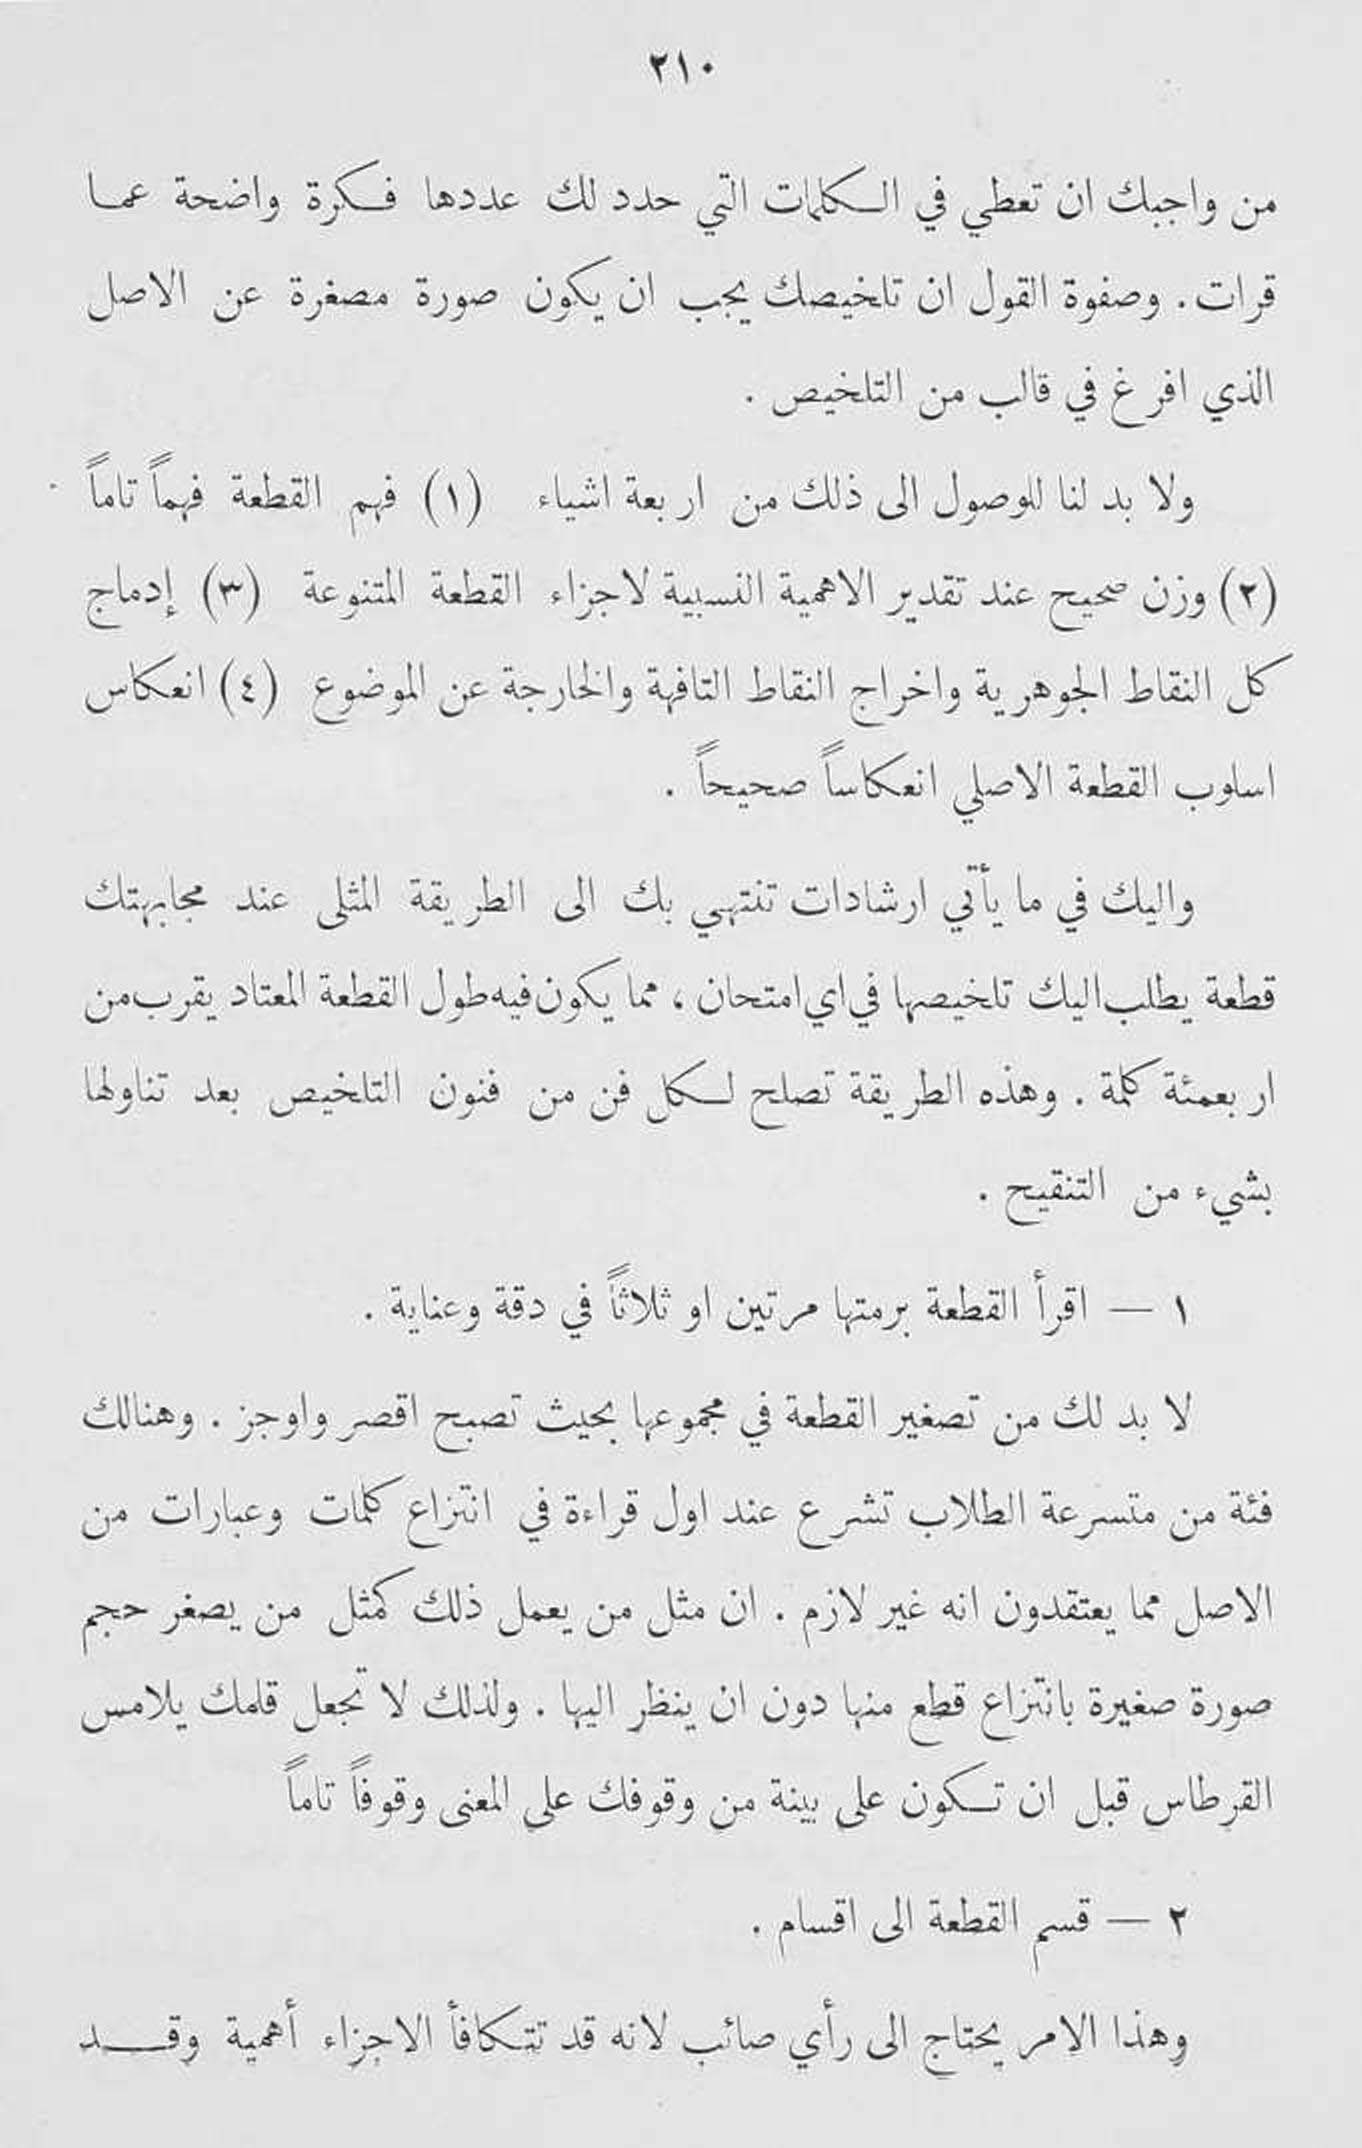 ٢١٠
من واجبك ان تعطي في الكلمات التي حدد لك عددها فكرة واضحة عما
قرات . وصفوة القول ان تلخيصك يجب ان يكون صورة مصغرة عن الاصل
الذي افرغ في قالب من التلخيص .
ولا بد لنا للوصول الى ذلك من اربعة اشياء (١) فهم القطعة فهماً تاماً
(٢) وزن صحيح عند تقدير الاهمية النسبية لاجزاء القطعة المتنوعة (٣) إدماج
كل النقاط الجوهرية واخراج النقاط التافهة والخارجة عن الموضوع (٤) انعكاس
اسلوب القطعة الاصلي انعكاساً صحيحاً .
واليك في ما يأتي ارشادات تنتهي بك الى الطريقة المثلى عند مجابهتك
قطعة يطلب اليك تلخيصها في اي امتحان ، مما يكون فيه طول القطعة المعتاد يقرب من
اربعمئة كلمة . وهذه الطريقة تصلح لكل فن من فنون التلخيص بعد تناولها
بشيء من التنقيح .
١ — اقرأ القطعة برمتها مرتين او ثلاثاً في دقة وعناية .
لا بد لك من تصغير القطعة في مجموعها بحيث تصبح اقصر واوجز . وهنالك
فئة من متسرعة الطلاب تشرع عند اول قراءة في انتزاع كلمات وعبارات من
الاصل مما يعتقدون انه غير لازم . ان مثل من يعمل ذلك كمثل من يصغر حجم
صورة صغيرة بانتزاع قطع منها دون ان ينظر اليها . ولذلك لا تجعل قلمك يلامس
القرطاس قبل ان تكون على بينة من وقوفك على المعنى وقوفاً تاماً
٢ — قسم القطعة الى اقسام .
وهذا الامر يحتاج الى رأي صائب لانه قد تتكافأ الاجزاء أهمية وقد